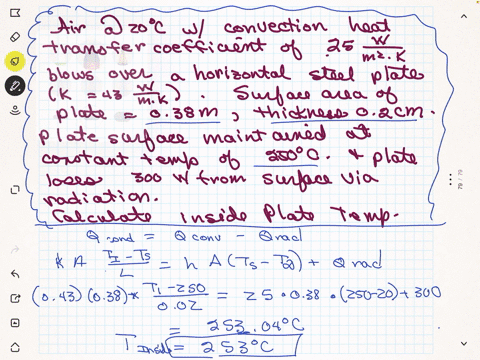 Air @ 20°C w/ convection heat
transfer coefficient of 25 W/m².K
blows over a horizontal steel plate
(K = 43 W/m.K). Surface area of
plate = 0.38m, thickness 0.2cm.
plate surface maintained at
constant temp of 250°C. & plate
loses 300 W from surface via
radiation.
Calculate inside Plate Temp.
Q cond = Q conv - Qrad
K A (TI - TS)/L = h A (Ts - T∞) + Q rad
(0.43)(0.38)* (TI - 250)/0.02 = 25 • 0.38 • (250-20) + 300
= 253.04°C
T inside = 253°C
79 / 79